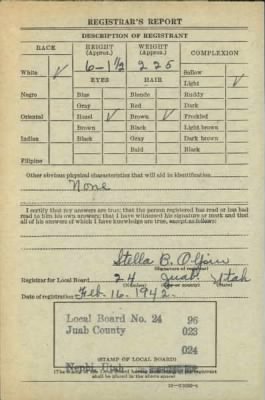 REGISTRAR'S REPORT
DESCRIPTION OF REGISTRANT
RACE HEIGHT (Approx.) WEIGHT (Approx.) COMPLEXION
White ✓ 6-1½ 225 Sallow
EYES HAIR Light ✓
Negro Blue Blonde Ruddy
Gray Red Dark
Oriental Hazel ✓ Brown ✓ Freckled
Brown Black Light brown
Indian Black Gray Dark brown
Bald Black
Filipino
Other obvious physical characteristics that will aid in identification
None
I certify that my answers are true; that the person registered has read or has had
read to him his own answers; that I have witnessed his signature or mark and that
all of his answers of which I have knowledge are true, except
Stella B.
(Signature of registrar)
Registrar for Local Board 24 Juab Utah
(Number) (State)
Date of registration Feb. 16. 1942.
Local Board No. 24 96
Juab County 023
024
Nephi, Utah
(STAMP OF LOCAL BOARD)
shall be placed in the above space)